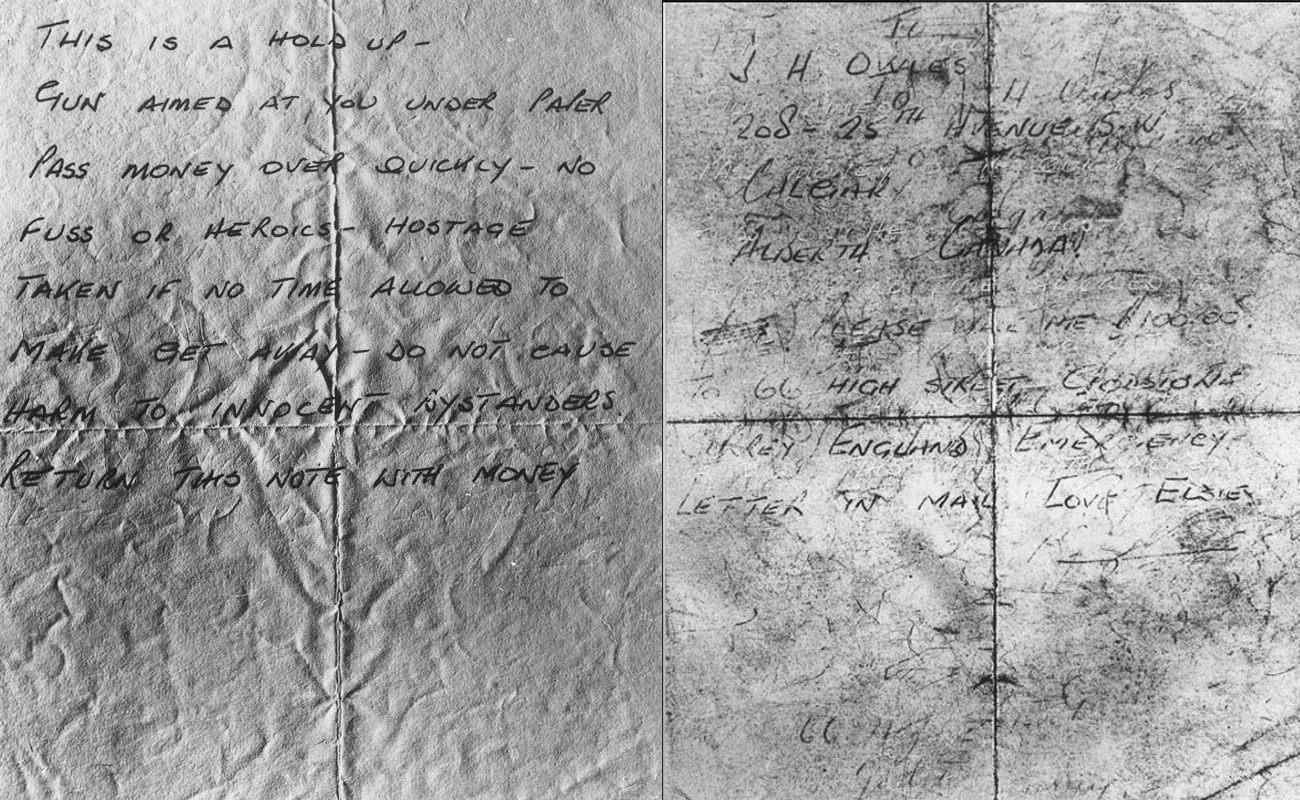 THIS IS A HOLD UP -
GUN AIMED AT YOU UNDER PAPER
PASS MONEY OVER QUICKLY - NO
FUSS OR HEROICS - HOSTAGE
TAKEN IF NO TIME ALLOWED TO
MAKE GET AWAY - DO NOT CAUSE
HARM TO INNOCENT BYSTANDERS.
RETURN THIS NOTE WITH MONEY
To
J. H OWLES
208 - 25TH AVENUE. S.W.
CALGARY
ALBERTA CANADA
PLEASE ME $100.00.
TO 66 HIGH STREET
ENGLAND EMERGENCY.
LETTER IN MAIL LOVE ELSIE
66